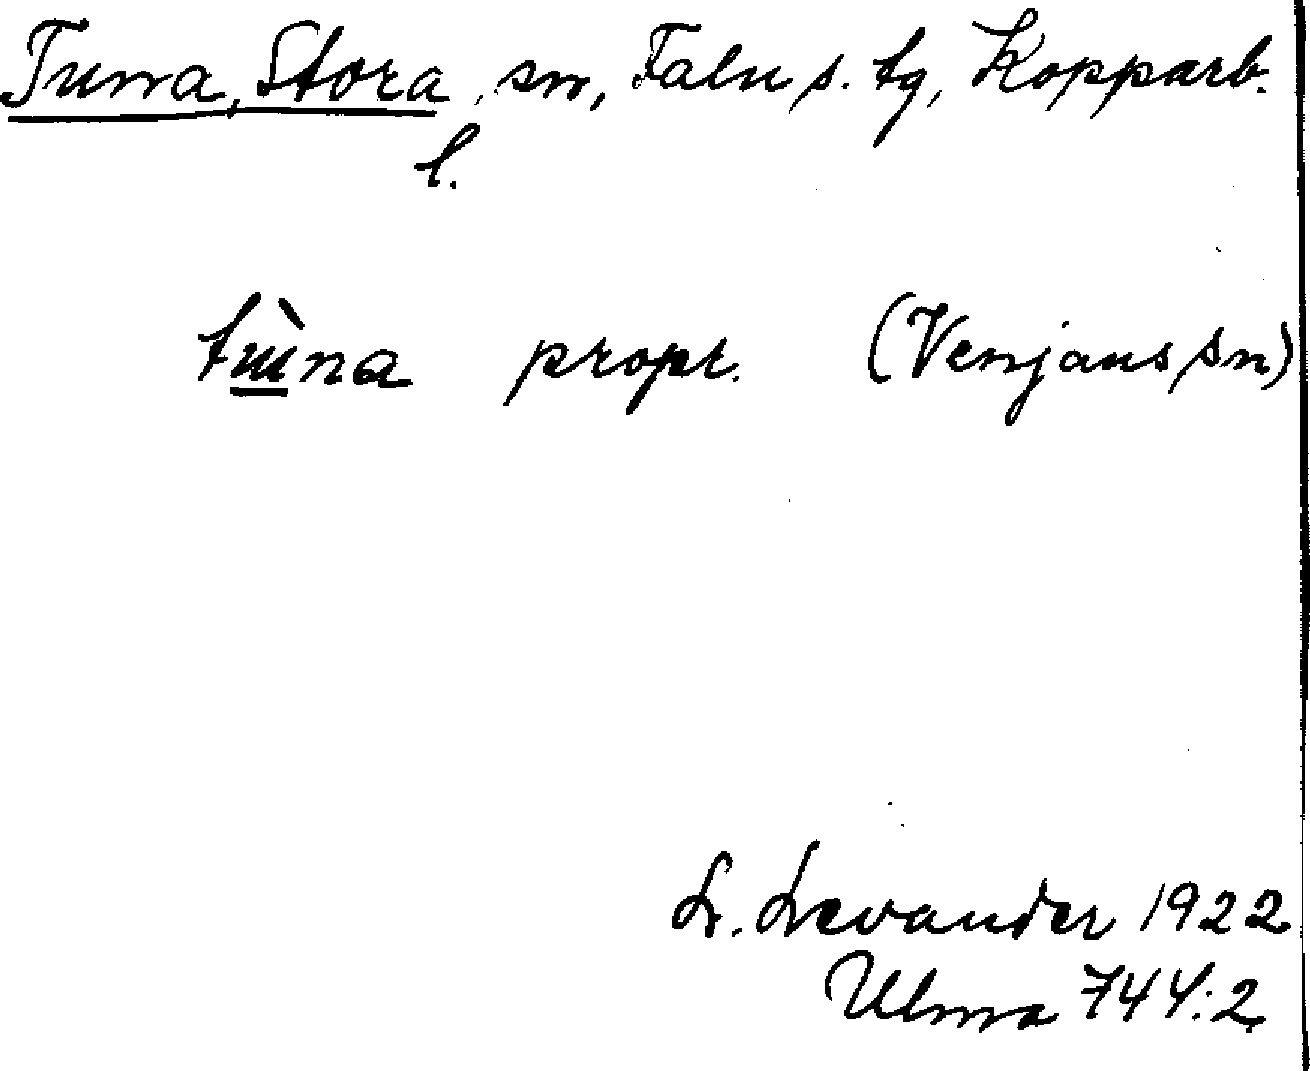 Tuna, Stora, sn, Falu s. tg, Kopparb.
l.
tùna propr. (Venjans sn)
L. Levander 1922
Ulma 744:2